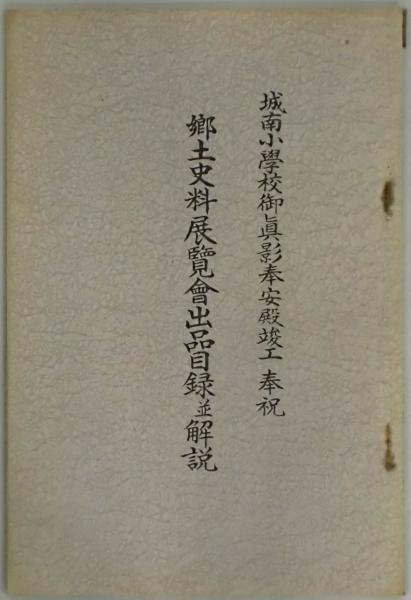 城南小學校御眞影奉安殿竣工 奉祝
鄉土史料展覽會出品目録並解説